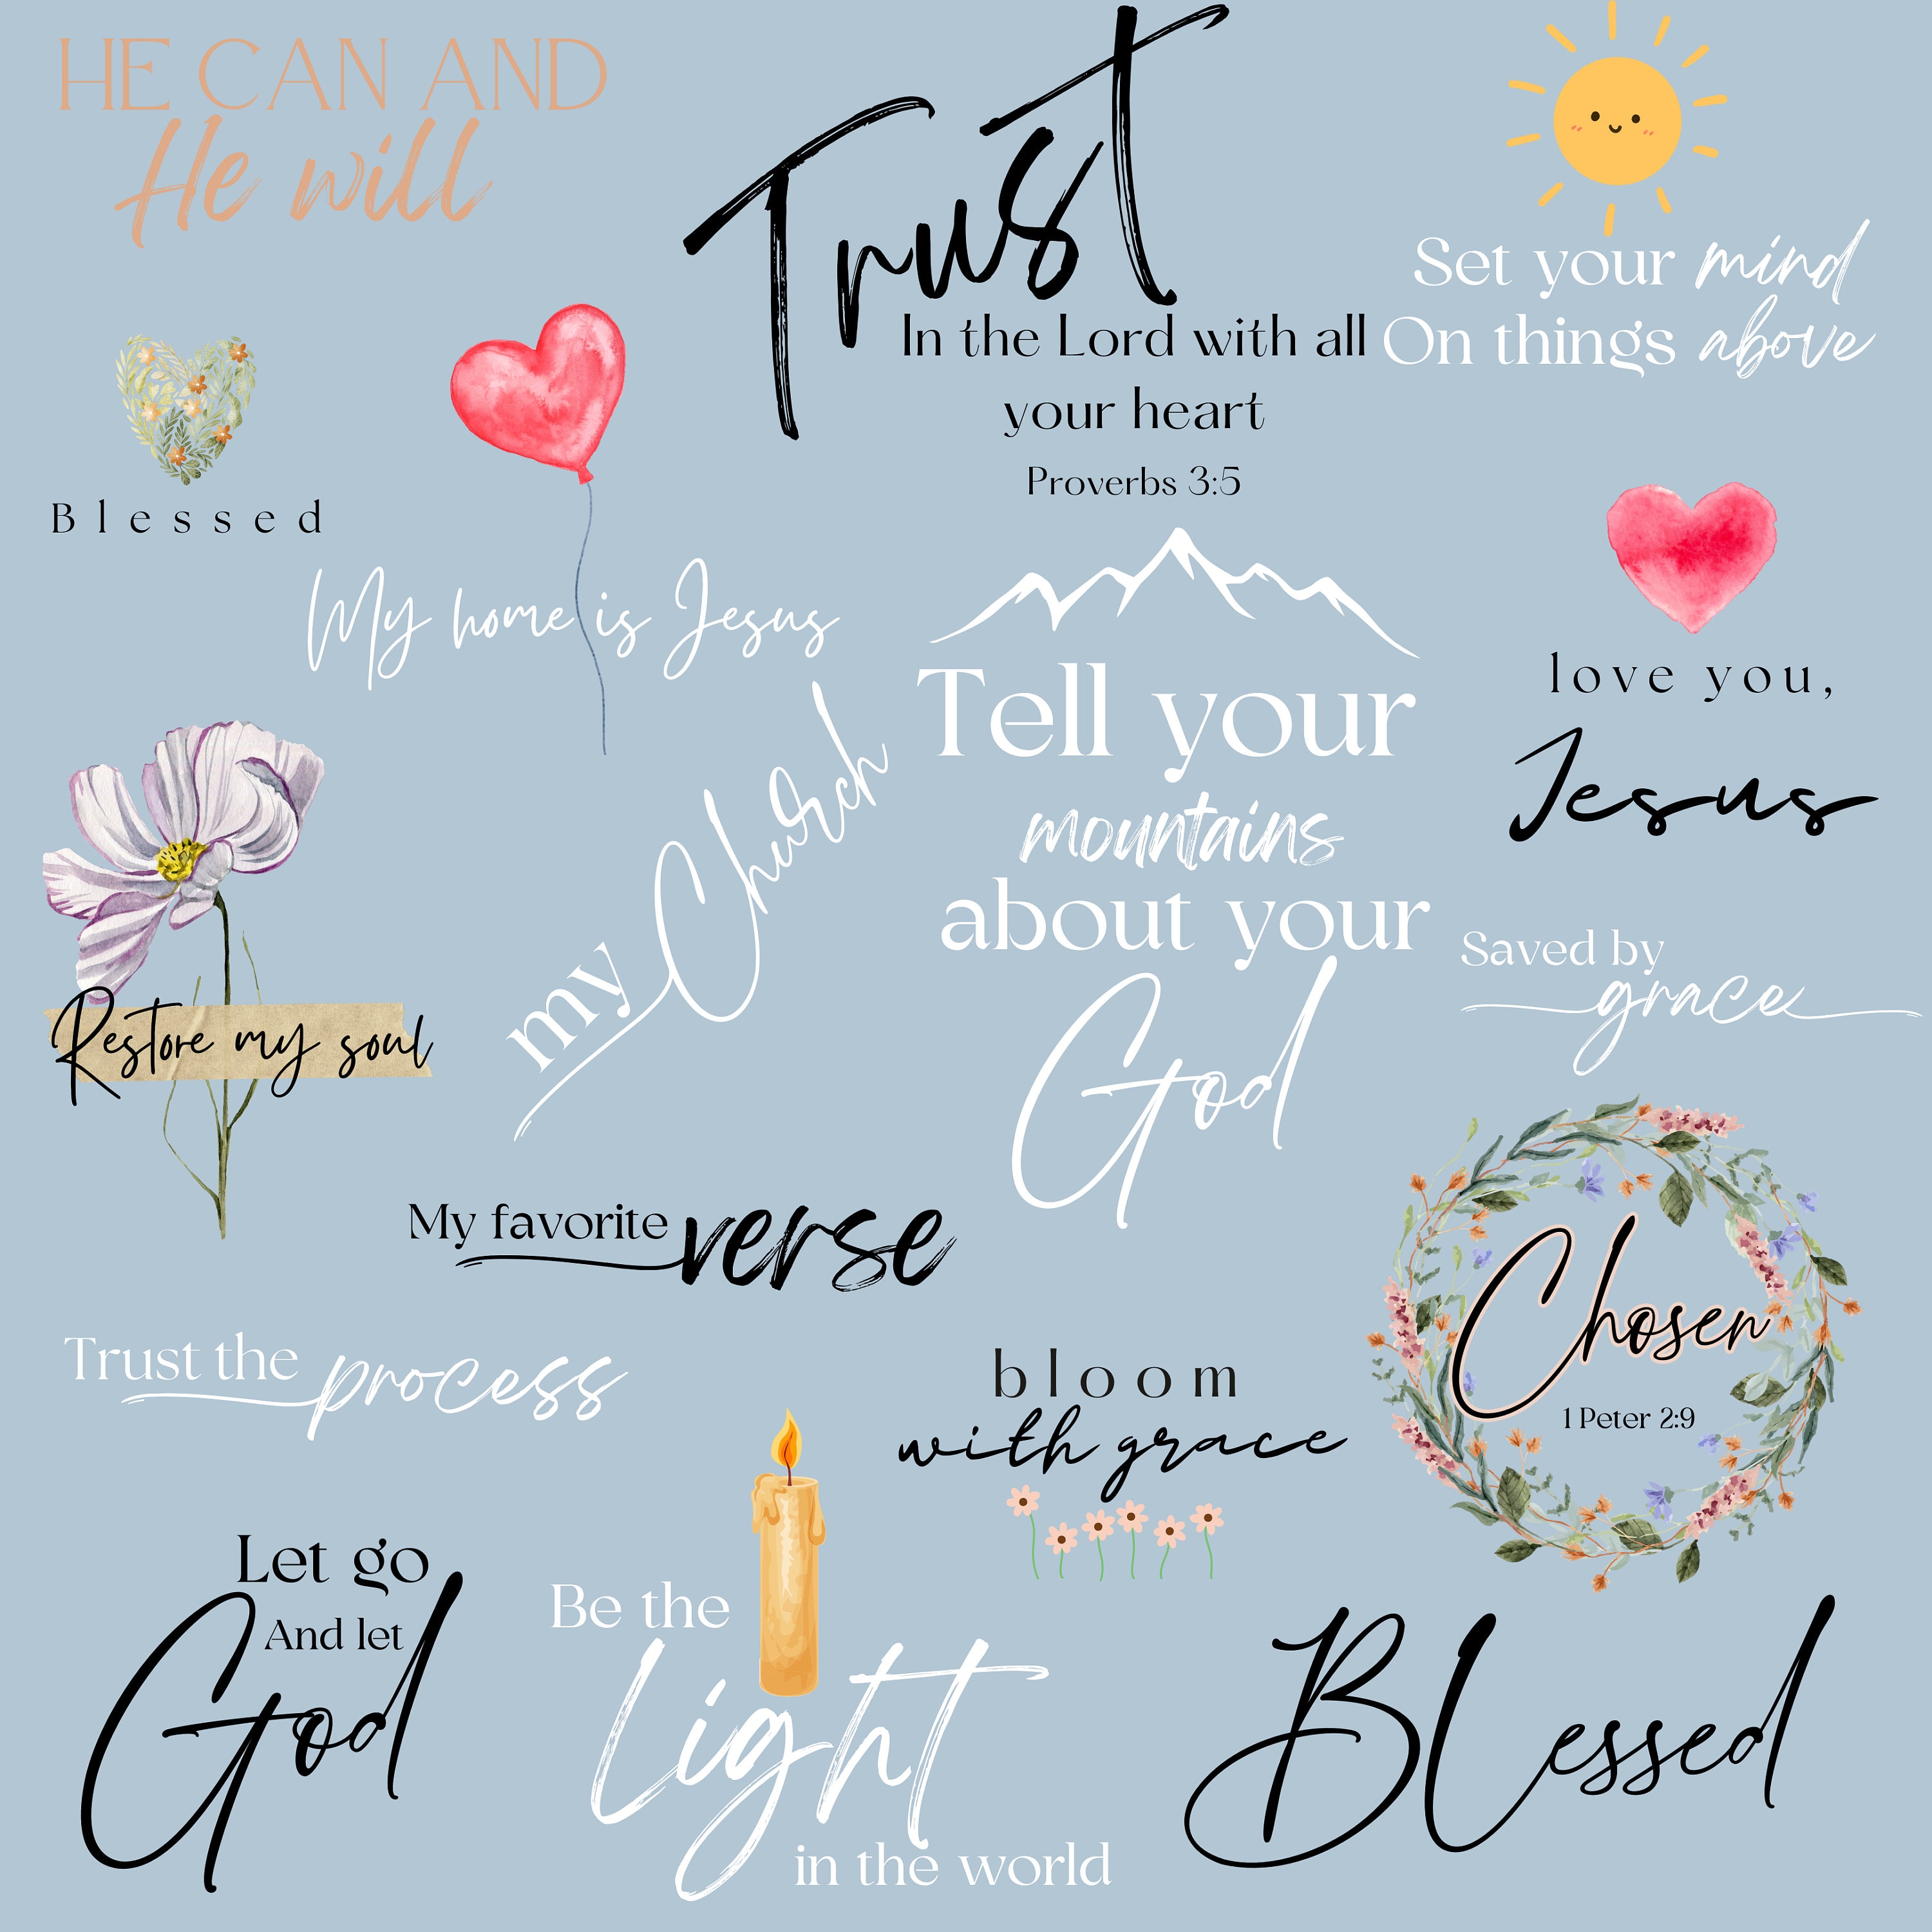 HE CAN AND
He will
Trust
In the Lord with all
your heart
Proverbs 3:5
Set your mind
On things above
Blessed
My home is Jesus
love you,
Jesus
Tell your
mountains
about your
God
my Church
Saved by
grace
Restore my soul
My favorite verse
Chosen
1 Peter 2:9
Trust the process
bloom
with grace
Let go
And let
God
Be the
light
in the world
Blessed